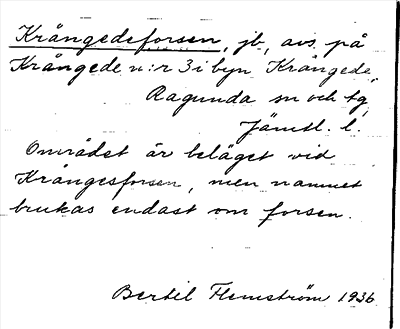 Krångedeforsen, jb, avs. på
Krångede n:r 3 i byn Krångede,
Ragunda sn och tg,
Jämtl. l.
Området är beläget vid
Krångesforsen, men namnet
brukas endast om forsen.
Bertil Flemström 1936